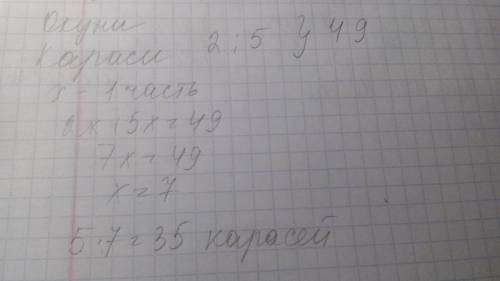 Окуни
Караси 2 : 5 } 49
x - 1 часть
2x + 5x = 49
7x = 49
x = 7
5 · 7 = 35 карасей